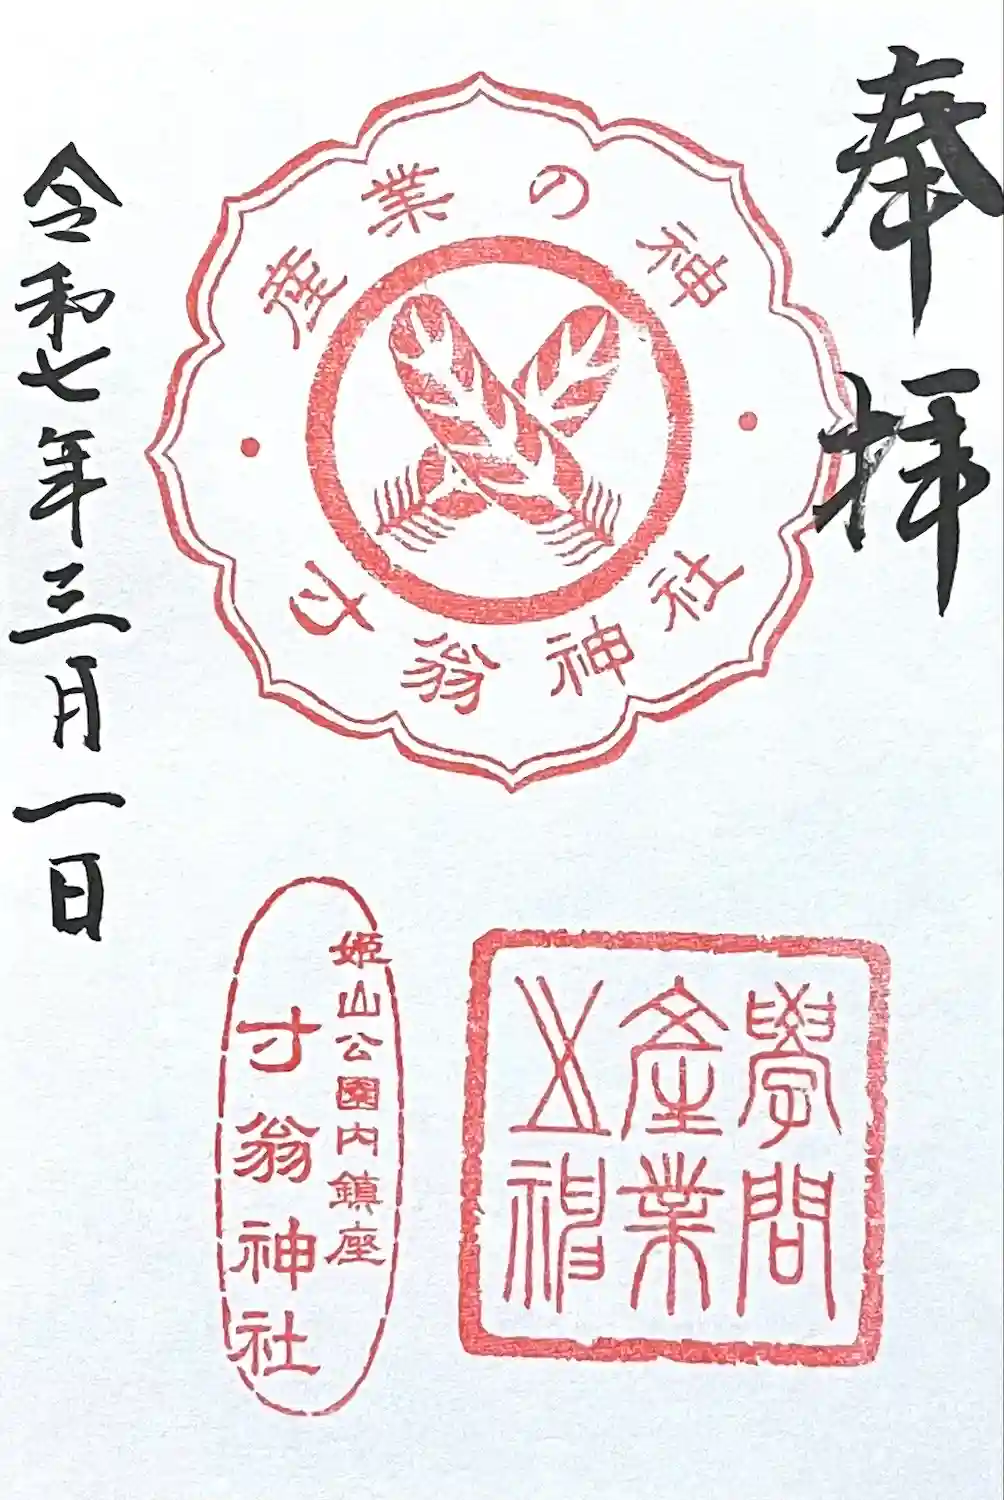 奉拝
産業の神
寸翁神社
學問
產業
之神
姫山公園内鎮座
寸翁神社
令和七年三月一日